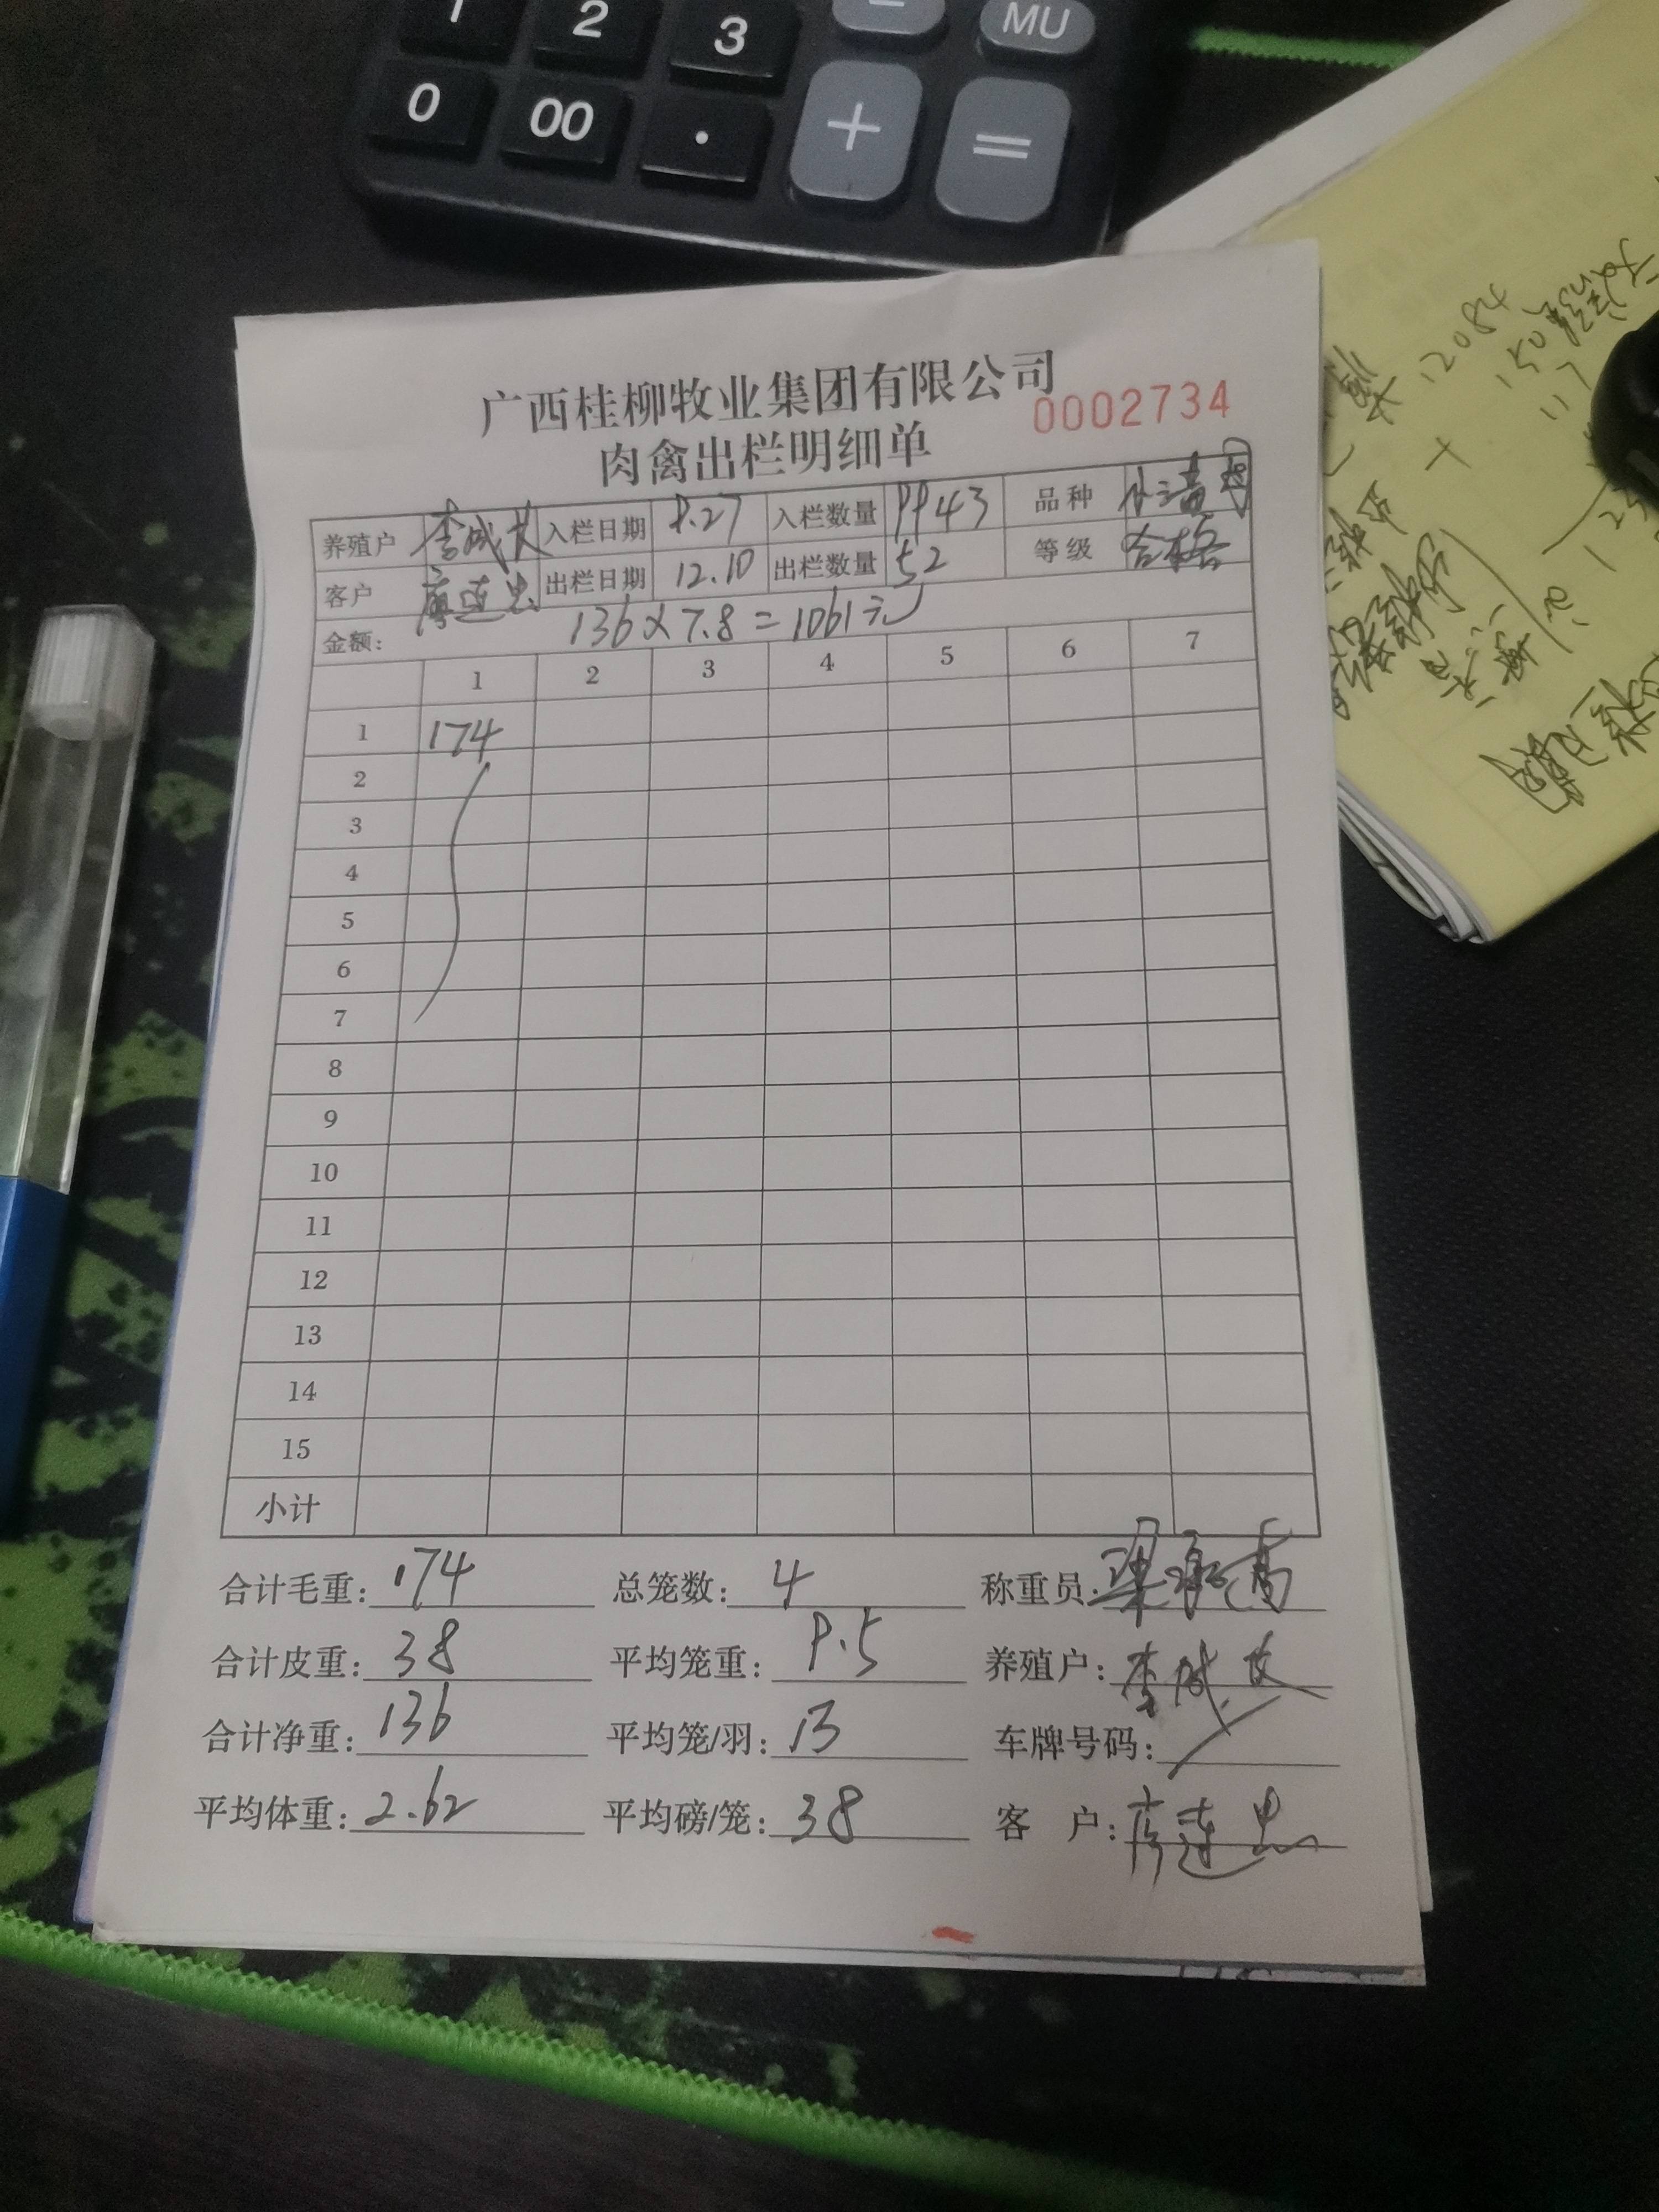 1 2 3 − MU
0 00 . + =
广西桂柳牧业集团有限公司
0002734
肉禽出栏明细单
养殖户 李成文 入栏日期 9.27 入栏数量 9943 品种
客户 廖连忠 出栏日期 12.10 出栏数量 52 等级 合格
金额: 136×7.8=1061元
1 2 3 4 5 6 7
1 174
2
3
4
5
6
7
8
9
10
11
12
13
14
15
小计
合计毛重: 174 总笼数: 4 称重员:
合计皮重: 38 平均笼重: 9.5 养殖户: 李成文
合计净重: 136 平均笼/羽: 13 车牌号码:
平均体重: 2.62 平均磅/笼: 38 客 户: 廖连忠
12084
150
117